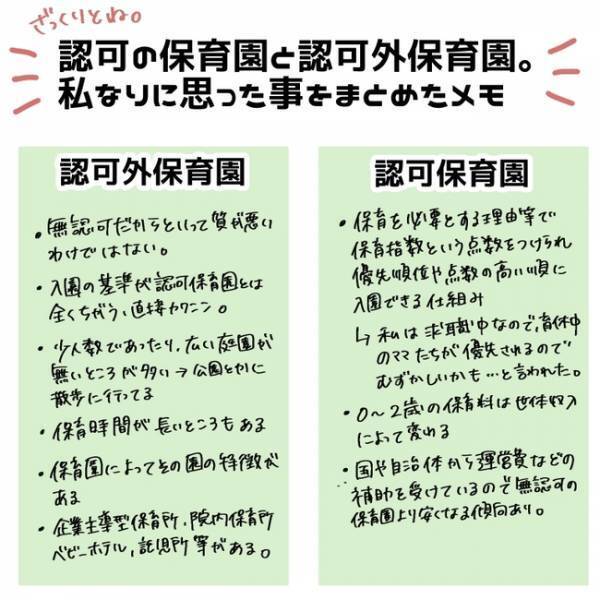 ざっくりとね。
認可の保育園と認可外保育園。
私なりに思った事をまとめたメモ
認可外保育園
・無認可だからといって質が悪い
わけではない。
・入園の基準が認可保育園とは
全くちがう、直接カクニン。
・少人数であったり、広い庭園が
無いところが多い→公園とかに
散歩に行ってる
・保育時間が長いところもある
・保育園によってその園の特徴が
ある
・企業主導型保育所、院内保育所
ベビーホテル、託児所等がある。
認可保育園
・保育を必要とする理由等で
保育指数という点数をつけられ
優先順位や点数の高い順に
入園できる仕組み
↳私は求職中なので、育休中
のママたちが優先されるので
むずかしいかも…と言われた。
・0〜2歳の保育料は世体収入
によって変わる
・国や自治体から運営費などの
補助を受けているので無認可の
保育園より安くなる傾向あり。